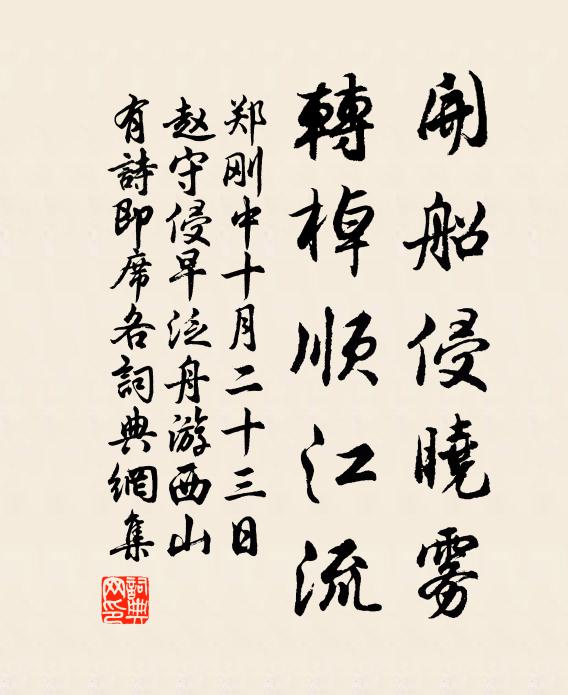 開船侵曉霧
轉棹順江流
郑刚中十月二十三日
赵守侵早泛舟游西山
有詩即席各詞典網集
詞典網印